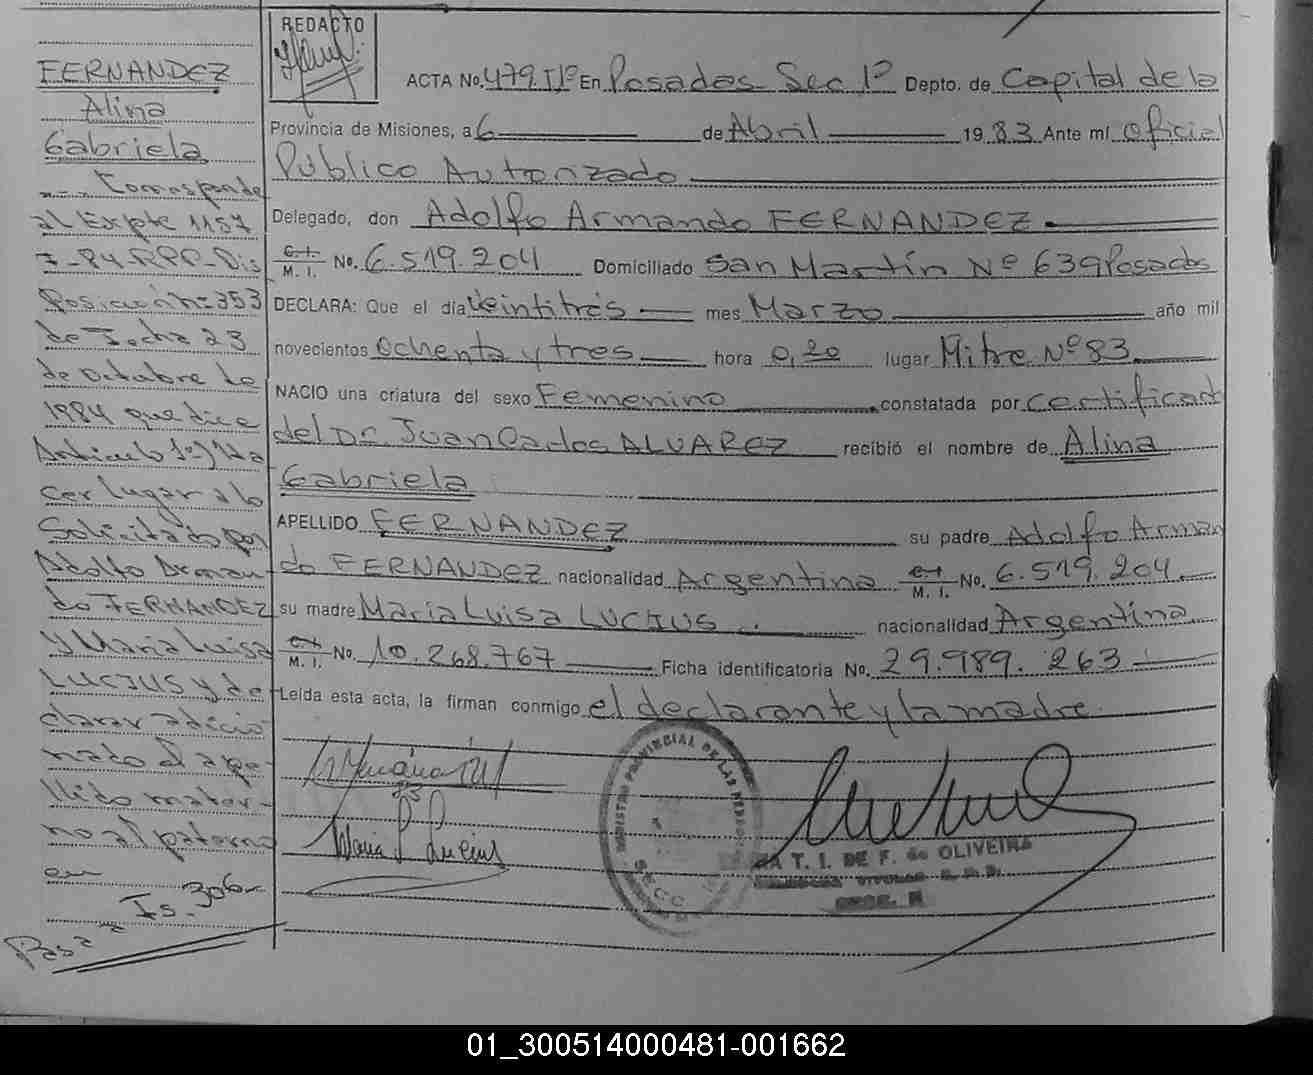 FERNANDEZ
Alina
Gabriela
Corresponde
al Expte 1157
7-84 RPP Dis
posición h= 353
de Fecha 23
de octubre de
1984 que dice
Articulo 1º) Ha
cer lugar a lo
Solicitado por
Adolfo Arman
do FERNANDEZ
y Maria Luisa
LUCIUS y de
clarar adicio
nado el ape-
llido mater-
no al paterno
en
Fs. 306-
Pasa
REDACTO
ACTA No. 479. Iº En Posadas Sec 1º Depto. de Capital de la
Provincia de Misiones, a 6 de Abril 1983 Ante mí Oficial
Público Autorizado
Delegado, don Adolfo Armando FERNANDEZ
C.I. M. I. No. 6.519.204 Domiciliado San Martín Nº 639 Posadas
DECLARA: Que el día veintitrés mes Marzo año mil
novecientos Ochenta y tres hora 0,20 lugar Mitre Nº 83
NACIO una criatura del sexo Femenino constatada por certificad
del Dr. Juan Carlos ALVAREZ recibió el nombre de Alina
Gabriela
APELLIDO FERNANDEZ su padre Adolfo Arman
do FERNANDEZ nacionalidad Argentina C.I. M. I. No. 6.519.204
su madre Maria Luisa LUCIUS nacionalidad Argentina
C.I. M. I. No. 10.268.767 Ficha identificatoria No. 29.989.263
Leída esta acta, la firman conmigo el declarante y la madre.
Maria L Lucius
REGISTRO PROVINCIAL DE LAS PERSONAS
SECC.
T. I. DE F. de OLIVEIRA
01_300514000481-001662